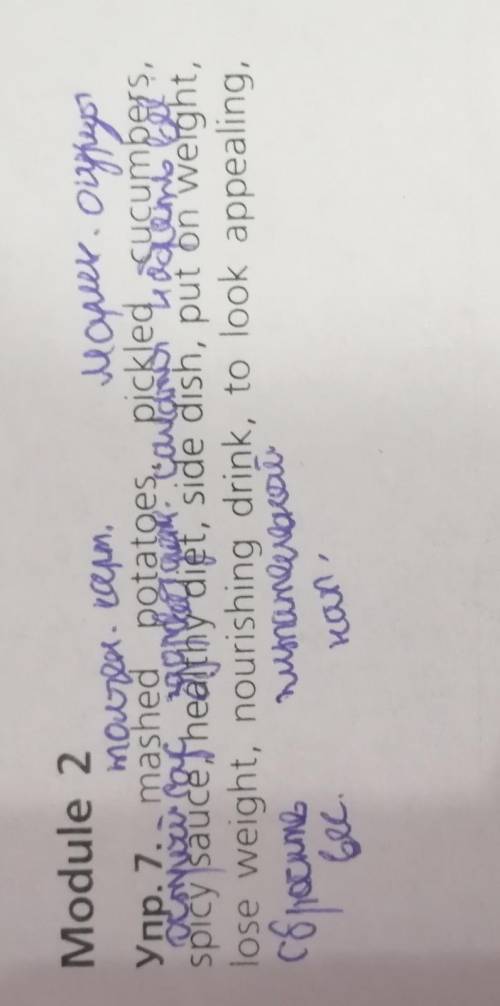 Module 2
толчен. карт. марин. огурцы
Упр. 7. mashed potatoes, pickled cucumbers,
острый салат набрать вес
spicy sauce, healthy diet, side dish, put on weight,
lose weight, nourishing drink, to look appealing,
сбросить питательный
вес. нап.